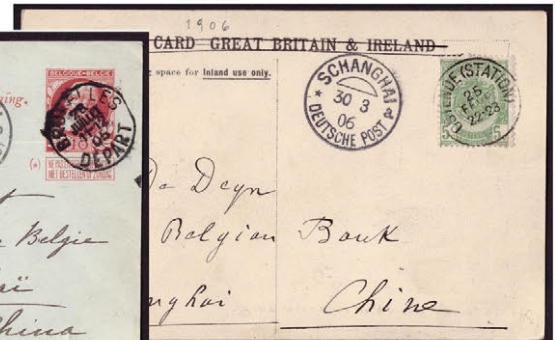 1906
CARD GREAT BRITAIN & IRELAND
space for Inland use only.
SCHANGHAI
30 3
06
DEUTSCHE POST
OSTENDE (STATION)
25
22-23
5 5
De Deyn
Belgian Bank
nghai
Chine
BELGIQUE-BELGIE
BRUXELLES
DEPART
10
(*)
NE PAS LIVRER
NIET BESTELLEN OP ZONDAG
Belgie
aï
China